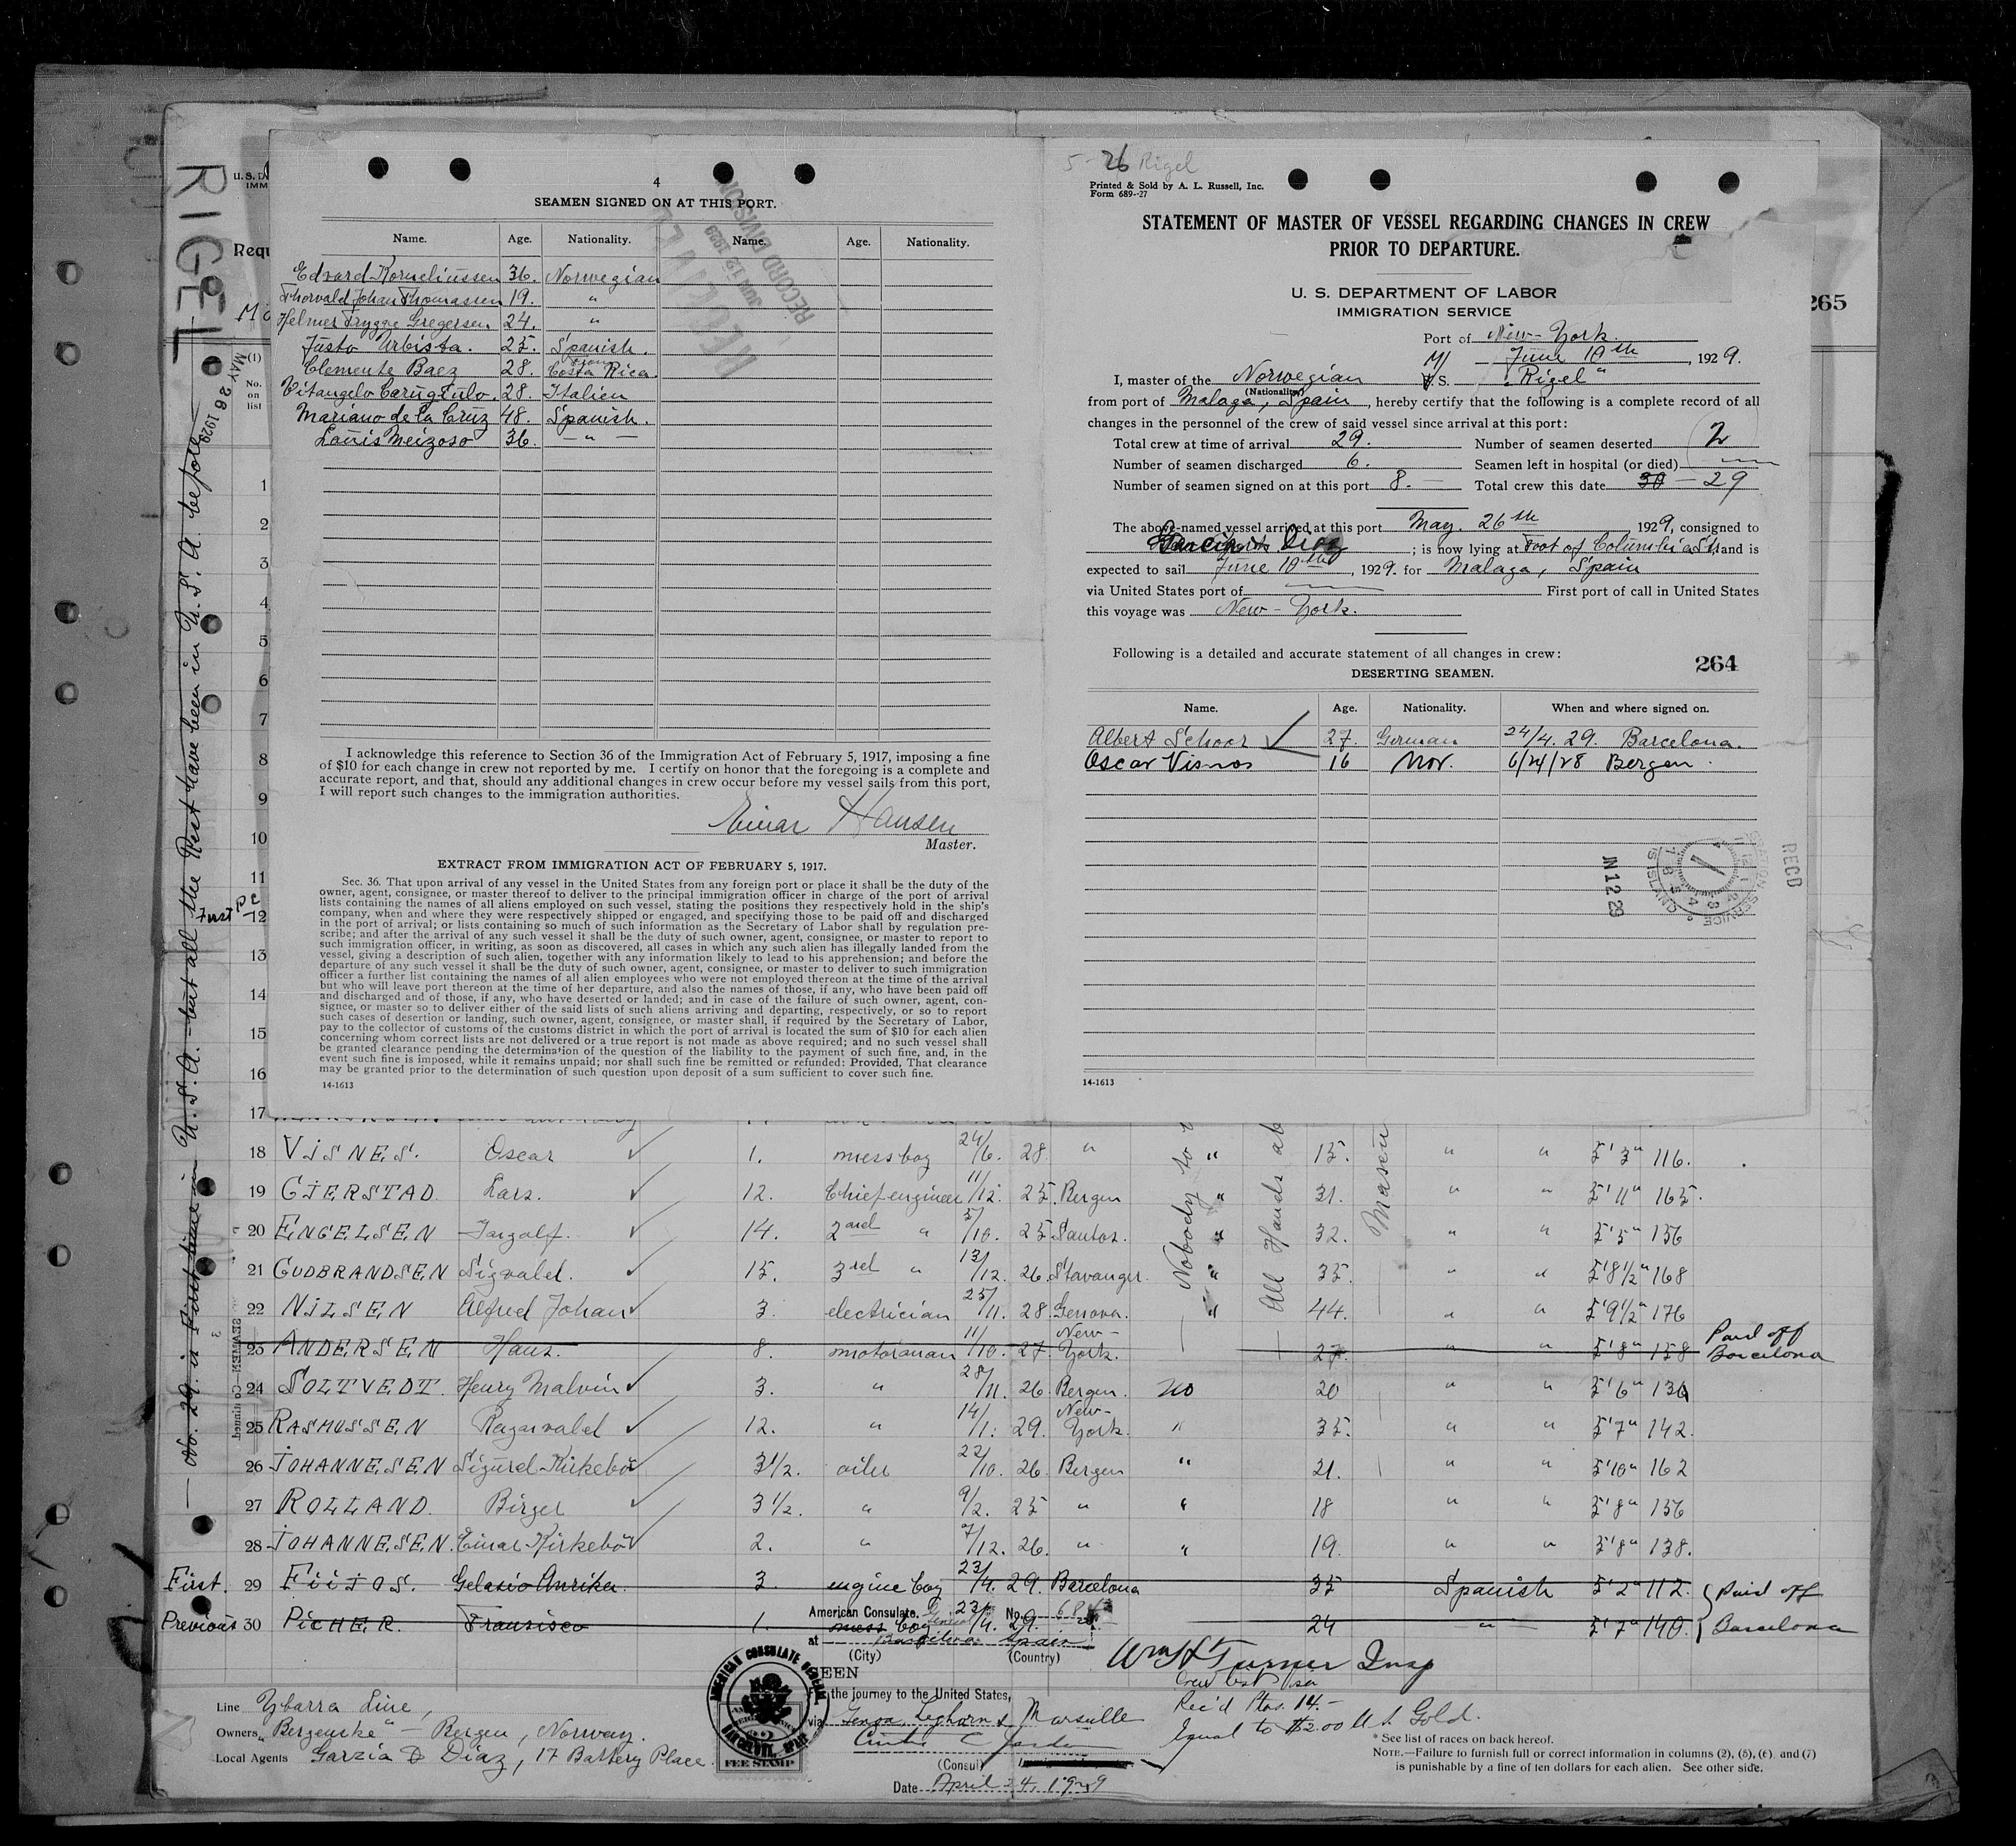 RIGEL
MAY 26 1929
ob. 29. is First time in U.S.A. - but all the Rest have been in U.S.A. before
U. S. D
IMM
Requ
(1)
No.
on
list
4
SEAMEN SIGNED ON AT THIS PORT.
Name. Age. Nationality. Name. Age. Nationality.
Edvard Korneliussen 36. Norwegian
Thorvald Johan Thomassen 19. "
Helmer Trygge Gregersen. 24. "
Justo Urbista. 25. Spanish.
Clemente Baez 28. Costa Rica.
Vitangelo Carugtulo. 28. Italien
Mariano de la Cruz 48. Spanish.
Louis Meizoso 36. — " —
RECEIVED
JUN 12 1929
RECORD DIVISION
I acknowledge this reference to Section 36 of the Immigration Act of February 5, 1917, imposing a fine
of $10 for each change in crew not reported by me. I certify on honor that the foregoing is a complete and
accurate report, and that, should any additional changes in crew occur before my vessel sails from this port,
I will report such changes to the immigration authorities.
Einar Hansen
Master.
EXTRACT FROM IMMIGRATION ACT OF FEBRUARY 5, 1917.
Sec. 36. That upon arrival of any vessel in the United States from any foreign port or place it shall be the duty of the
owner, agent, consignee, or master thereof to deliver to the principal immigration officer in charge of the port of arrival
lists containing the names of all aliens employed on such vessel, stating the positions they respectively hold in the ship's
company, when and where they were respectively shipped or engaged, and specifying those to be paid off and discharged
in the port of arrival; or lists containing so much of such information as the Secretary of Labor shall by regulation pre-
scribe; and after the arrival of any such vessel it shall be the duty of such owner, agent, consignee, or master to report to
such immigration officer, in writing, as soon as discovered, all cases in which any such alien has illegally landed from the
vessel, giving a description of such alien, together with any information likely to lead to his apprehension; and before the
departure of any such vessel it shall be the duty of such owner, agent, consignee, or master to deliver to such immigration
officer a further list containing the names of all alien employees who were not employed thereon at the time of the arrival
but who will leave port thereon at the time of her departure, and also the names of those, if any, who have been paid off
and discharged and of those, if any, who have deserted or landed; and in case of the failure of such owner, agent, con-
signee, or master so to deliver either of the said lists of such aliens arriving and departing, respectively, or so to report
such cases of desertion or landing, such owner, agent, consignee, or master shall, if required by the Secretary of Labor,
pay to the collector of customs of the customs district in which the port of arrival is located the sum of $10 for each alien
concerning whom correct lists are not delivered or a true report is not made as above required; and no such vessel shall
be granted clearance pending the determination of the question of the liability to the payment of such fine, and, in the
event such fine is imposed, while it remains unpaid; nor shall such fine be remitted or refunded: Provided, That clearance
may be granted prior to the determination of such question upon deposit of a sum sufficient to cover such fine.
14-1613
5-26 Rigel
Printed & Sold by A. L. Russell, Inc.
Form 689--27
STATEMENT OF MASTER OF VESSEL REGARDING CHANGES IN CREW
PRIOR TO DEPARTURE.
U. S. DEPARTMENT OF LABOR
IMMIGRATION SERVICE
265
Port of New-York.
June 10th, 1929.
I, master of the Norwegian M/S. "Rigel"
(Nationality)
from port of Malaga, Spain, hereby certify that the following is a complete record of all
changes in the personnel of the crew of said vessel since arrival at this port:
Total crew at time of arrival 29. Number of seamen deserted 2
Number of seamen discharged 6. Seamen left in hospital (or died) —
Number of seamen signed on at this port 8. — Total crew this date 30 — 29
The above-named vessel arrived at this port May. 26th 1929, consigned to
Garcia & Diaz; is now lying at Foot of Columbia St. and is
expected to sail June 10th, 1929. for Malaga, Spain
via United States port of — First port of call in United States
this voyage was New-York.
Following is a detailed and accurate statement of all changes in crew:
264
DESERTING SEAMEN.
Name. Age. Nationality. When and where signed on.
Albert Schoor 27. German 24/4. 29. Barcelona.
Oscar Visnes 16 Nor. 6/24/28 Bergen.
RECD
JN 12 29
14-1613
1
2
3
4
5
6
7
8
9
10
11
12
13
14
15
16
17
18 VISNES. Oscar 1. messboy 24/6. 28. " " 15. " " 5'3" 116.
19 GJERSTAD. Lars. 12. Chief engineer 11/12. 25. Bergen " 31. " " 5'11" 165.
20 ENGELSEN Ingolf. 14. 2nd " 5/10. 25 Santos. " 32. " " 5'5" 156
21 GUDBRANDSEN Sigvald. 15. 3rd " 13/12. 26. Stavanger. " 35. " " 5'8½" 168
22 NILSEN Alfred Johan 3. electrician 25/11. 28 Genova. " 44. " " 5'9½" 176
23 ANDERSEN Hans. 8. motorman 11/10. 27. New-York. 27. " " 5'8" 158 Paid off Barcelona
24 SOLTVEDT. Henry Malvin 3. " 28/11. 26. Bergen. no 20 " " 5'6" 130
25 RASMUSSEN Ragnvald 12. " 14/1. 29. New-York. " 35. " " 5'7" 142.
26 JOHANNESEN Sigurd Kirkebö 3½. oiler 22/10. 26. Bergen " 21. " " 5'10" 162
27 ROLLAND. Birger 3½. " 9/2. 25 " " 18 " " 5'8" 156
28 JOHANNESEN. Einar Kirkebö 2. " 7/12. 26. " " 19. " " 5'8" 138.
First. 29 Gelasio Anrike. 3. engine boy 23/4. 29. Barcelona 35 Spanish 5'2" 112. Paid off
Previous 30 PICHER. Fransisco 1. mess boy 23/4. 29. 24 " 5'7" 140. Barcelona
Nobody to
All Hands ab
American Consulate. General No.
at Barcelona Spain
(City) (Country)
SEEN
the journey to the United States,
via Genoa, Leghorn & Marseille
(Consul)
Date April 24, 1929
AMERICAN CONSULATE GENERAL
BARCELONA, SPAIN
FEE STAMP
Wm H Turner Insp
Crew list visa
Rec'd Ptas. 14.-
Equal to $2.00 U.S. Gold.
Line Ybarra Line,
Owners "Bergenske" - Bergen, Norway.
Local Agents Garzia & Diaz, 17 Battery Place.
* See list of races on back hereof.
NOTE.—Failure to furnish full or correct information in columns (2), (5), (6), and (7)
is punishable by a fine of ten dollars for each alien. See other side.